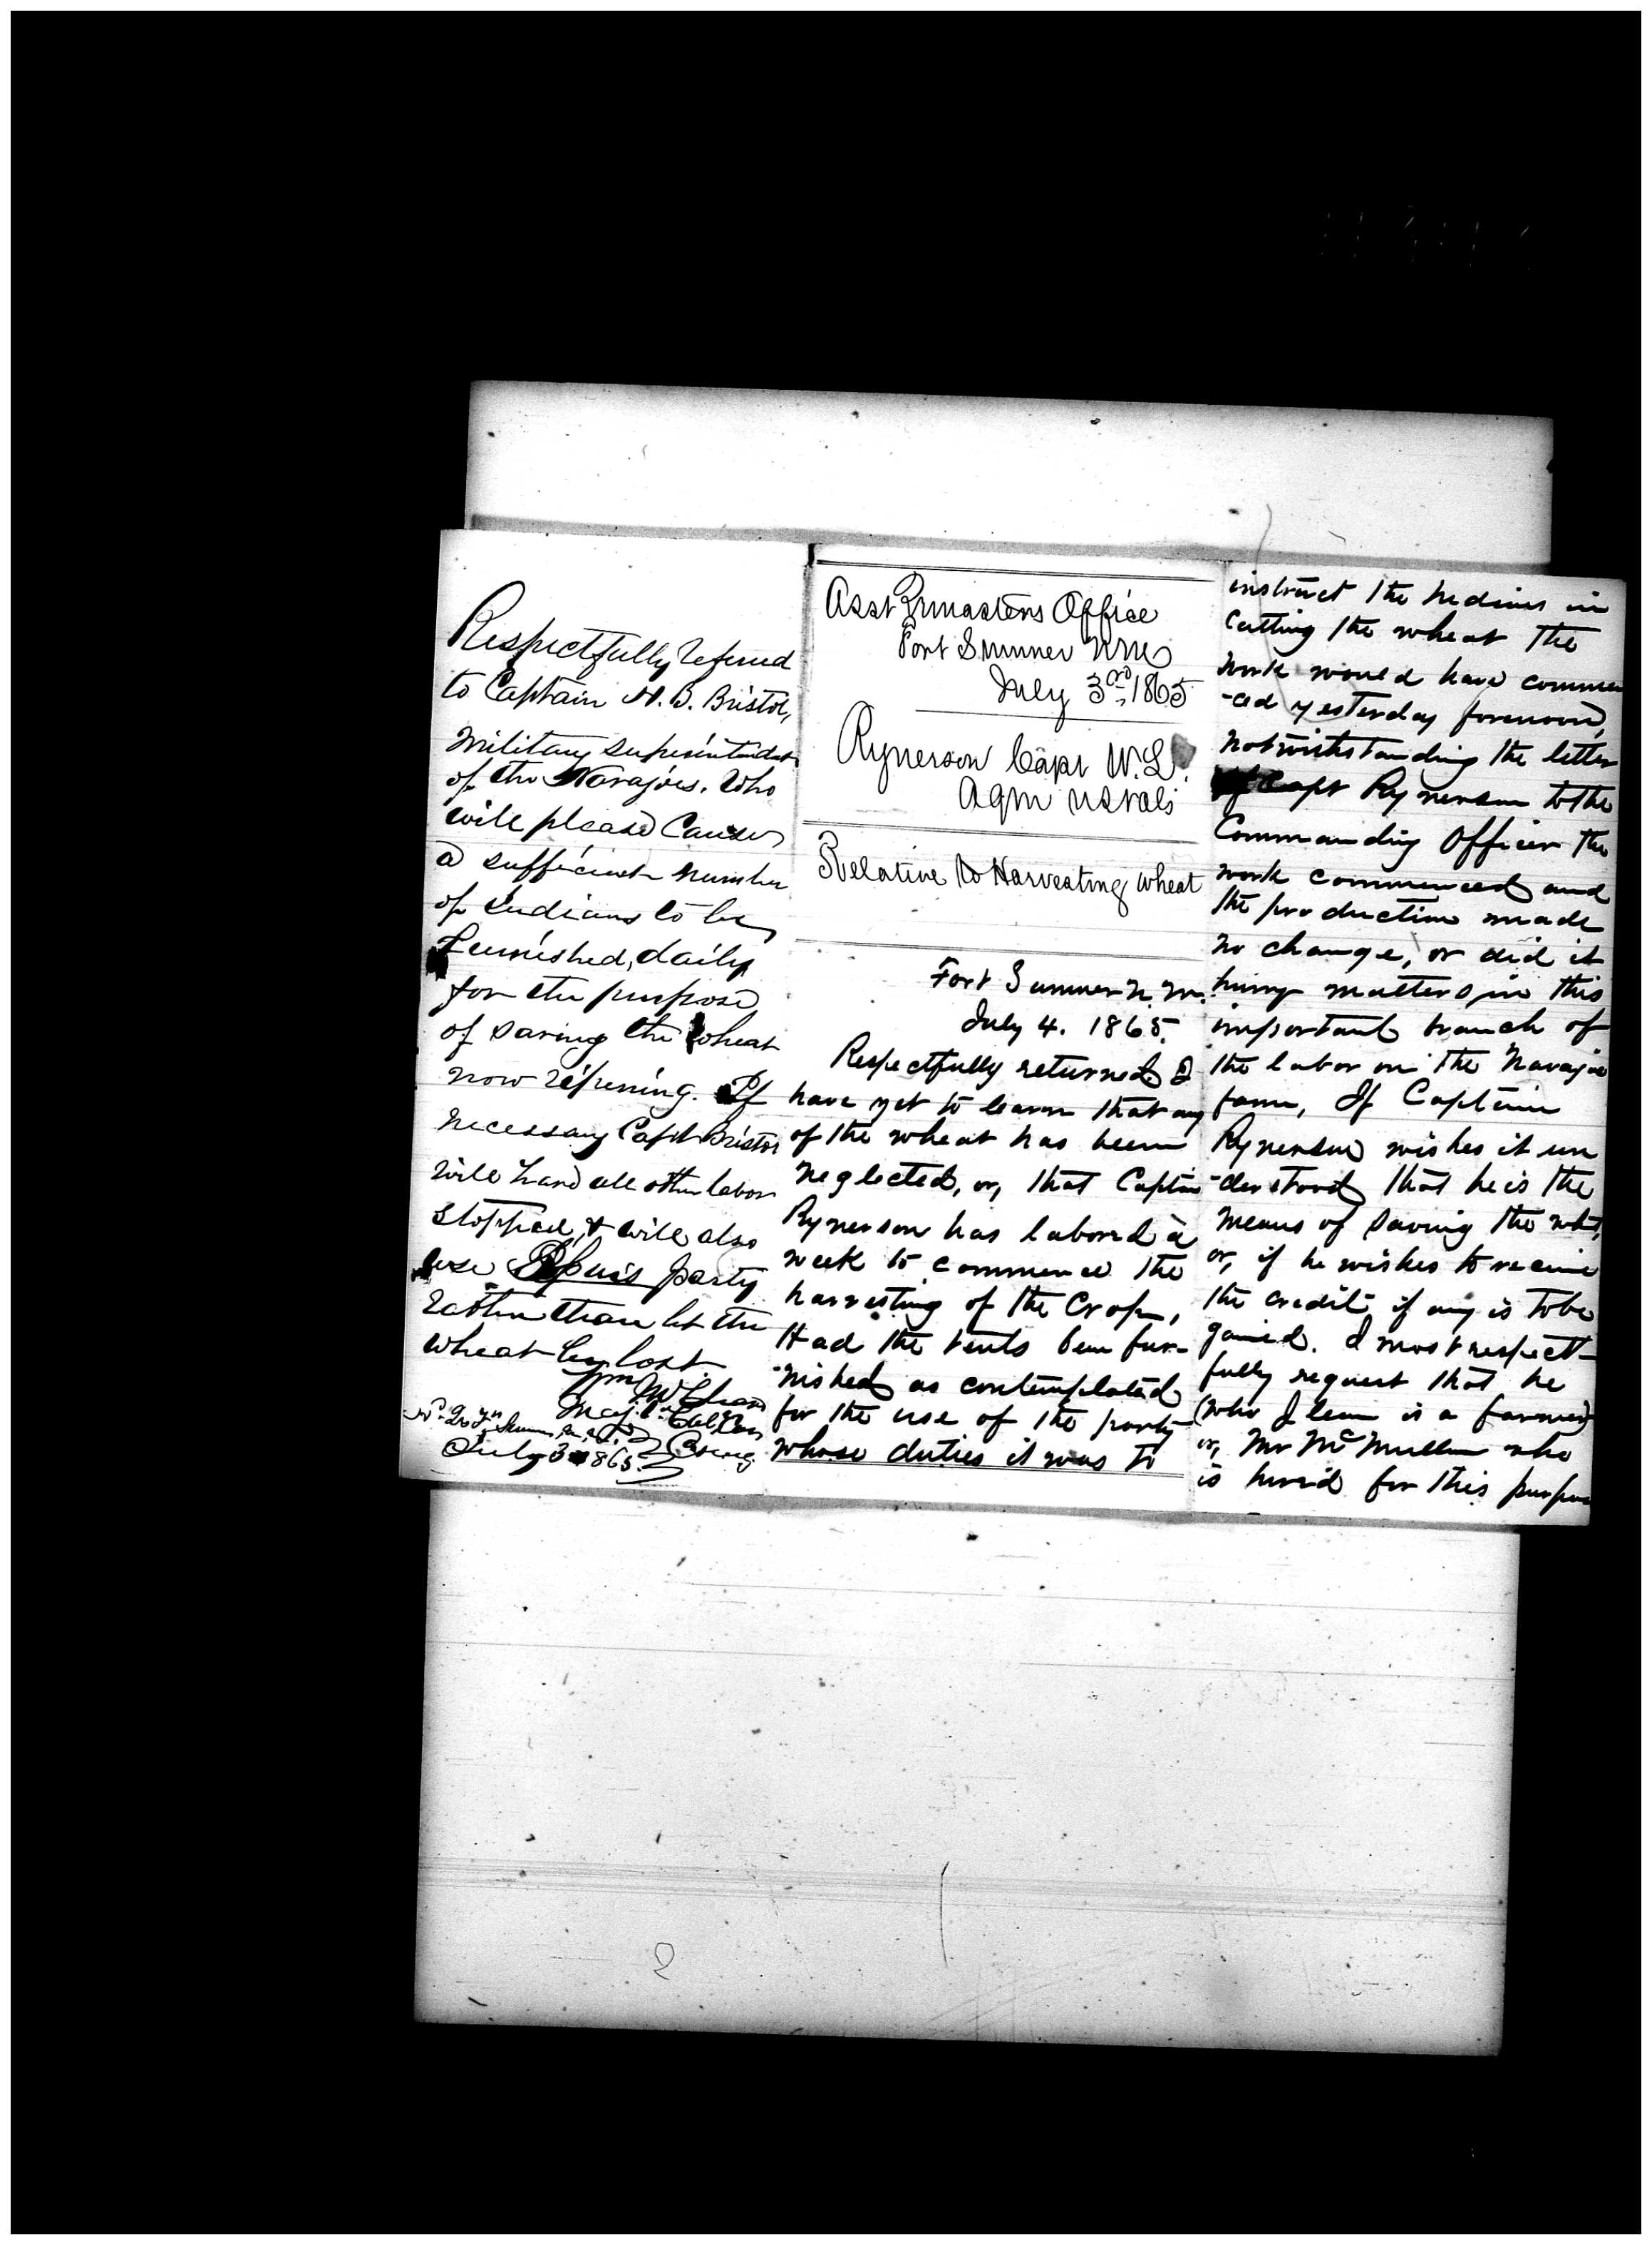 Respectfully refered
to Captain H. B. Bristol,
Military Superintendent
of the Navajoes. Who
will please Cause
a sufficient number
of Indians to be
furnished, daily
for the purpose
of saving the wheat
now ripening. If
necessary Capt Bristol
will have all other labor
stopped, & will also
use party
rather than let the
wheat be lost
Wm
Maj. 1st Cal Vet
Comg
July 3 1865.
Asst Qrmasters Office
Fort Sumner N M
July 3rd, 1865
Rynerson Capt W. L.
AQM US Vols
Relative to Harvesting wheat
Fort Sumner N. M.
July 4. 1865.
Respectfully returned I
have yet to learn that any
of the wheat has been
neglected, or, that Captain
Rynerson has labored a
week to commence the
harvesting of the Crop,
Had the tents been fur-
-nished as contemplated
for the use of the party
whose duties it was to
instruct the Indians in
Cutting the wheat The
work would have commen
-ced yesterday forenoon,
notwithstanding the letter
of Capt Rynerson to the
Commanding Officer the
work commenced and
the production made
no change, or did it
hurry matters in this
important branch of
the labor on the Navajoe
farm, If Captain
Rynerson wishes it un
-derstood that he is the
means of saving the wht,
or, if he wishes to receive
the credit if any is to be
gained. I most respect-
fully request that he
(who I learn is a farmer)
or, Mr McMullen who
is hired for this purpose